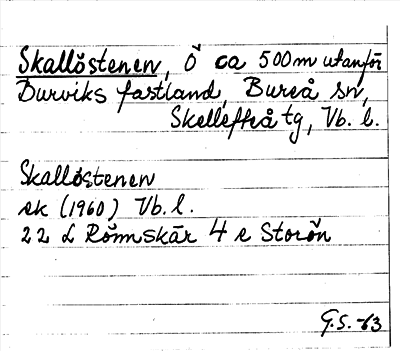 Skallöstenen, ö ca 500 m utanför
Burviks fastland, Bureå sn,
Skellefteå tg, Vb. l.
Skallöstenen
ek (1960) Vb. l.
22 L Rönnskär 4 e Storön
G.S. -63